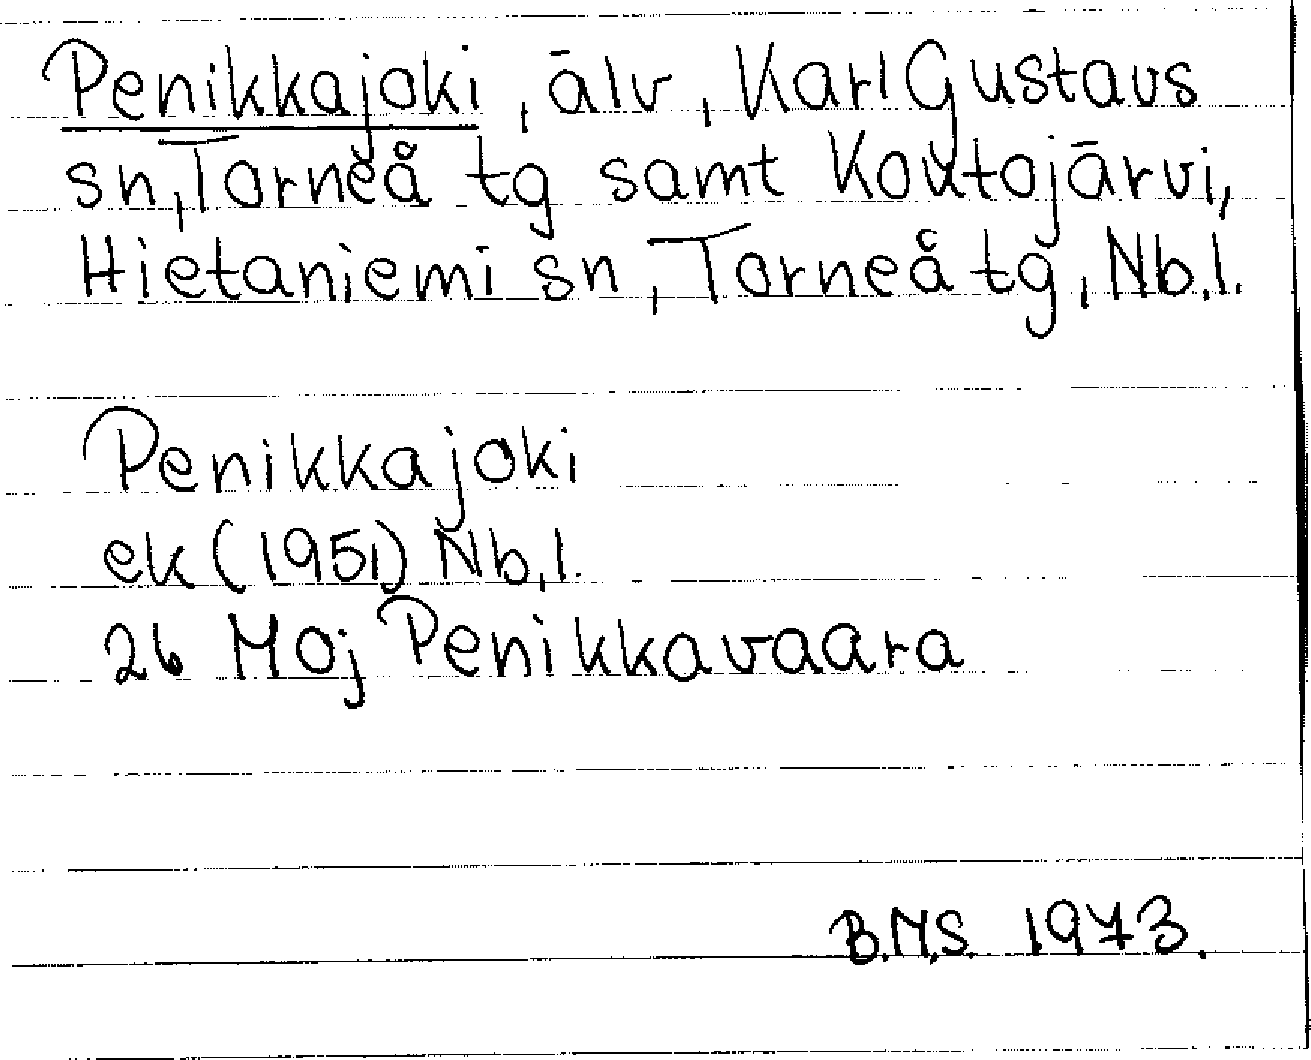 Penikkajoki, älv, Karl Gustavs
sn, Torneå tg samt Koutojärvi,
Hietaniemi sn, Torneå tg, Nb.l.
Penikkajoki
ek (1951) Nb.l.
26 Moj Penikkavaara
B.M.S. 1973.